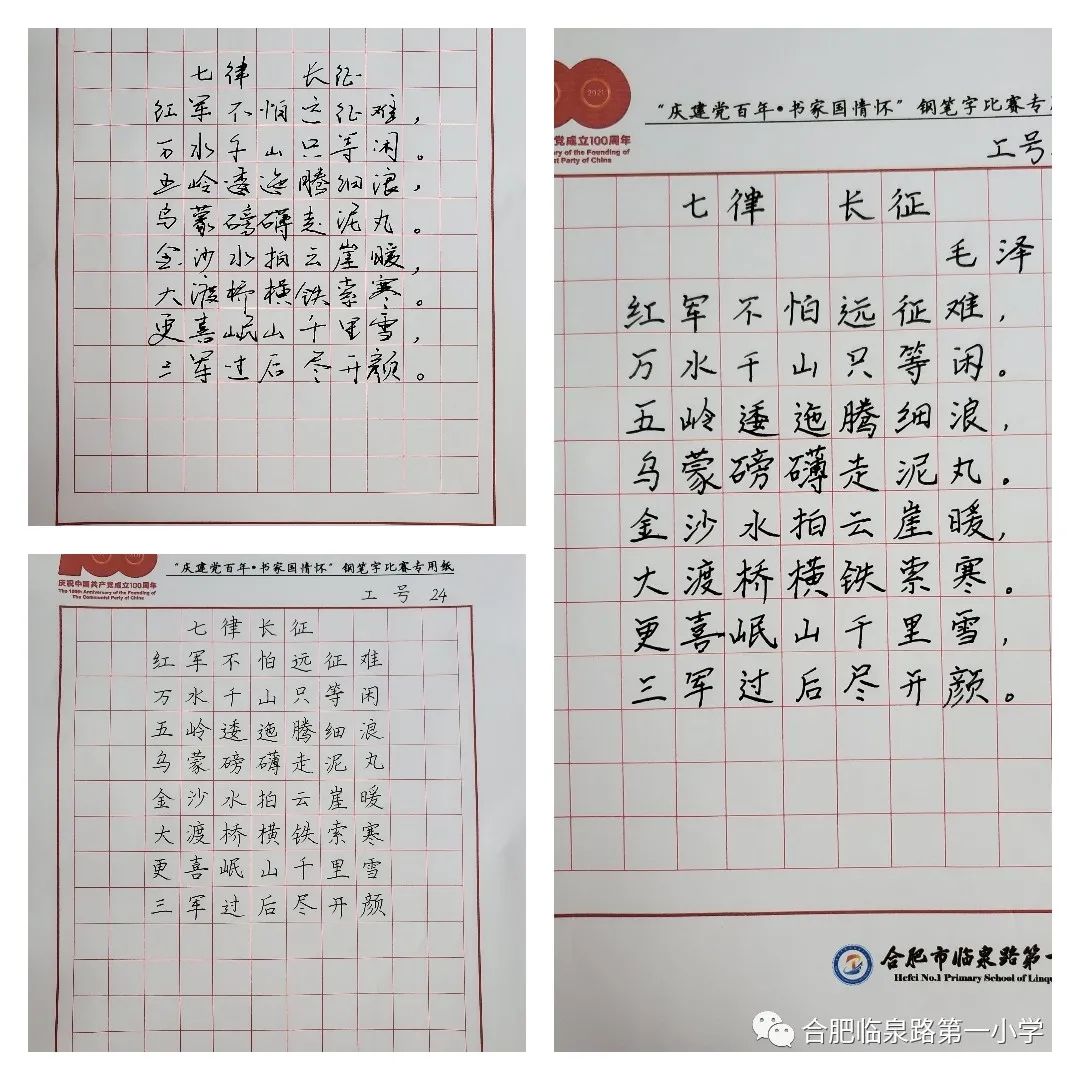 七律 长征
红军不怕远征难，
万水千山只等闲。
五岭逶迤腾细浪，
乌蒙磅礴走泥丸。
金沙水拍云崖暖，
大渡桥横铁索寒。
更喜岷山千里雪，
三军过后尽开颜。
庆祝中国共产党成立100周年
The 100th Anniversary of the Founding of
The Communist Party of China
“庆建党百年·书家国情怀”钢笔字比赛专用纸
工号 24
七律长征
红军不怕远征难
万水千山只等闲
五岭逶迤腾细浪
乌蒙磅礴走泥丸
金沙水拍云崖暖
大渡桥横铁索寒
更喜岷山千里雪
三军过后尽开颜
2021
党成立100周年
ry of the Founding of
Party of China
“庆建党百年·书家国情怀”钢笔字比赛专用
工号
七律 长征
毛泽
红军不怕远征难，
万水千山只等闲。
五岭逶迤腾细浪，
乌蒙磅礴走泥丸。
金沙水拍云崖暖，
大渡桥横铁索寒。
更喜岷山千里雪，
三军过后尽开颜。
合肥市临泉路第一
Hefei No.1 Primary School of Linqu
合肥临泉路第一小学